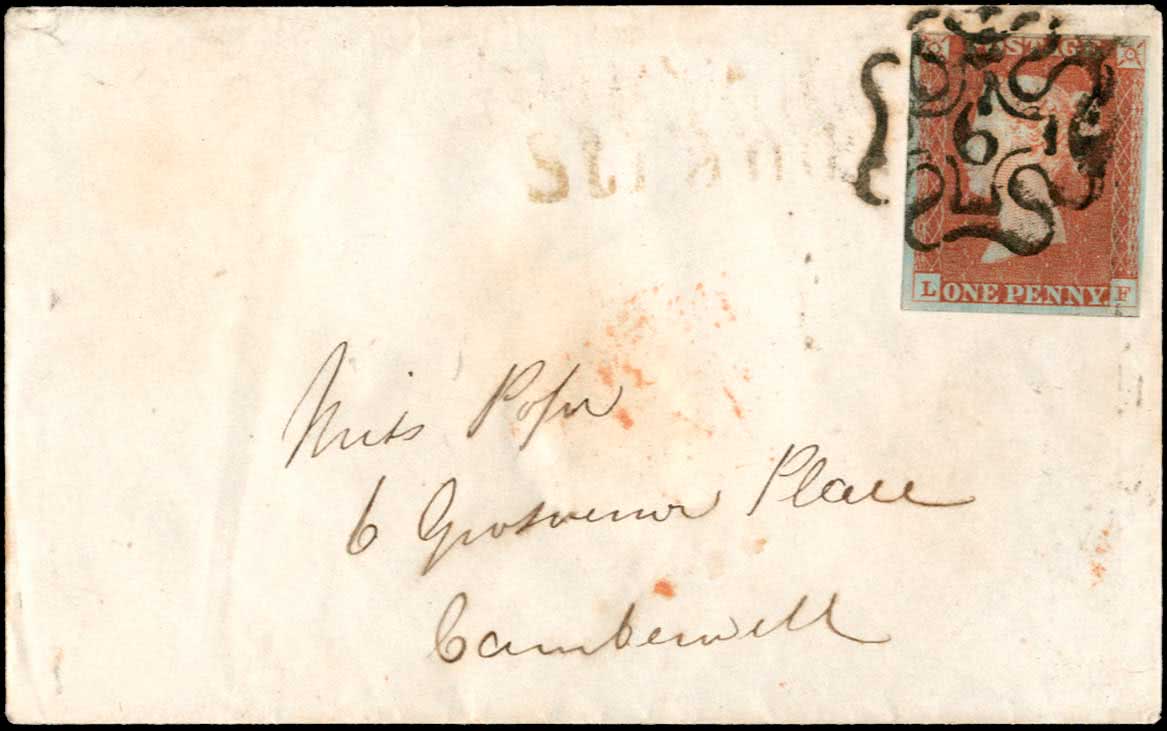 POSTAGE
6
L ONE PENNY F
Miss Pope
6 Grosvenor Place
Camberwell